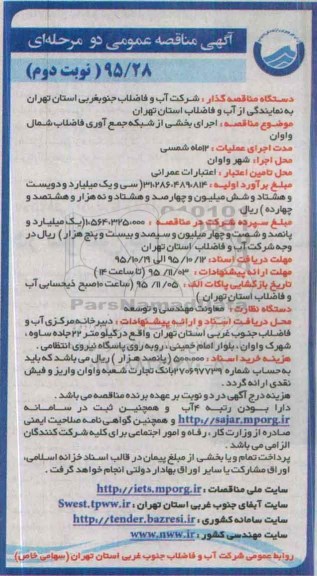 آگهی مناقصه عمومی دو مرحله‌ای
۹۵/۲۸ ( نوبت دوم )
دستگاه مناقصه گذار : شرکت آب و فاضلاب جنوبغربی استان تهران
به نمایندگی از آب و فاضلاب استان تهران
موضوع مناقصه : اجرای بخشی از شبکه جمع آوری فاضلاب شمال
واوان
مدت اجرای عملیات : ۱۲ماه شمسی
محل اجرا: شهر واوان
محل تامین اعتبار : اعتبارات عمرانی
مبلغ برآورد اولیه : ۳۱،۲۸۶،۴۸۹،۸۱۴( سی و یک میلیارد و دویست
و هشتاد و شش میلیون و چهارصد و هشتاد و نه هزار و هشتصد و
چهارده ) ریال
مبلغ سپرده شرکت در مناقصه : ۱،۵۶۴،۳۲۵،۰۰۰(یک میلیارد و
پانصد و شصت و چهار میلیون و سیصد و بیست و پنج هزار ) ریال در
وجه شرکت آب و فاضلاب استان تهران
مهلت دریافت اسناد: ۹۵/۱۰/۱۲ الی ۹۵/۱۰/۱۹
مهلت ارائه پیشنهادات : ۹۵/۱۱/۰۳ (تا ساعت ۱۴ )
تاریخ بازگشایی پاکات الف : ۹۵/۱۱/۰۵ (ساعت ۱۰صبح ذیحسابی آب
و فاضلاب استان تهران )
دستگاه نظارت : معاونت مهندسی و توسعه
محل دریافت اسناد و ارائه پیشنهادات : دبیرخانه مرکزی آب و
فاضلاب جنوب غربی استان تهران واقع در کیلومتر ۲۲جاده ساوه ،
شهرک واوان ، بلوار امام خمینی ، روبه روی پاسگاه نیروی انتظامی .
هزینه خرید اسناد : ۵۰۰،۰۰۰ (پانصد هزار ) ریال می باشد که باید
به حساب شماره ۲۷۰۶۹۷۷۳۹بانک تجارت شعبه واوان واریز و فیش
نقدی ارائه گردد .
هزینه درج آگهی در دو نوبت بر عهده برنده مناقصه می باشد .
دارا بودن رتبه ۴آب و همچنین ثبت در سامانه
http://sajar.mporg.ir و همچنین گواهی نامه صلاحیت ایمنی
صادره از وزارت کار ، رفاه و امور اجتماعی برای کلیه شرکت کنندگان
الزامی می باشد .
پرداخت تمام و یا بخشی از مبلغ پیمان در قالب اسناد خزانه اسلامی،
اوراق مشارکت یا سایر اوراق بهادار دولتی انجام خواهد گرفت .
سایت ملی مناقصات : http://iets.mporg.ir
سایت آبفای جنوب غربی استان تهران : Swest.tpww.ir
سایت سامانه کشوری : http://tender.bazresi.ir
سایت مهندسی کشور : www.nww.ir
روابط عمومی شرکت آب و فاضلاب جنوب غربی استان تهران (سهامی خاص)